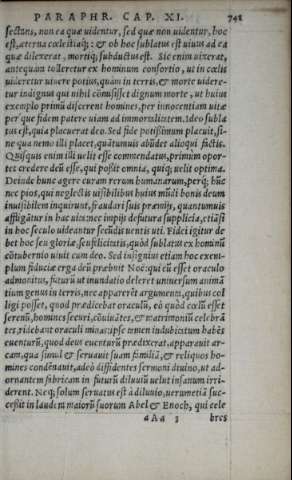 PARAPHR. CAP. XI. 741
sectans, non ea quæ uidentur, sed quæ non uidentur, hoc
est, æterna cœlestiaq́;: & ob hoc sublatus est uiuus ad ea
quæ dilexerat, mortiq́; subductus est. Sic enim uixerat,
antequam tolleretur ex hominum consortio, ut in cœlis
uideretur uiuere potius, quàm in terris, & morte uidere-
tur indignus qui nihil cõmisisset dignum morte, ut huius
exemplo primũ discerent homines, per innocentiam uitæ
per que fidem patere uiam ad immortalitatem. Ideo subla
tus est, quia placuerat deo. Sed fide potissimum placuit, si-
ne qua nemo illi placet, quãtumuis abũdet alioqui factis.
Quisquis enim illi uelit esse commendatus, primùm opor-
tet credere deũ esse, qui possit omnia, quiq́; uelit optima.
Deinde hunc agere curam rerum humanarum, perq́; hũc
nec pios, qui neglectis uisibilibus huius mũdi bonis deum
inuisibilem inquirunt, fraudari suis præmijs, quantumuis
affligãtur in hac uita: nec impijs defutura supplicia, etiãsi
in hoc seculo uideantur secũdis uentis uti. Fidei igitur de
bet hoc seu gloriæ, seu felicitatis, quòd sublatus ex hominũ
cõtubernio uiuit cum deo. Sed insignius etiam hoc exem-
plum fiduciæ erga deũ præbuit Noë: qui cũ esset oraculo
admonitus, futurũ ut inundatio deleret uniuersum animã
tium genus in terris, nec apparerẽt argumenta, quibus col
ligi posset, quod prædicebat oraculũ, eò quòd cœlũ esset
serenũ, homines securi, cõuiuãtes, & matrimoniũ celebrã
tes, ridebant oraculi minas: ipse tamen indubitatum habẽs
euenturũ, quod deus euenturũ prædixerat, apparauit ar-
cam, qua simul & seruauit suam familiã, & reliquos ho-
mines condẽnauit, adeò diffidentes sermoni diuino, ut ad-
ornantem fabricam in futurũ diluuiũ uelut insanum irri-
derent. Neq́; solum seruatus est à diluuio, uerumetiã suc-
cessit in laudem maiorũ suorum Abel & Enoch, qui cele
aAa 3 bres